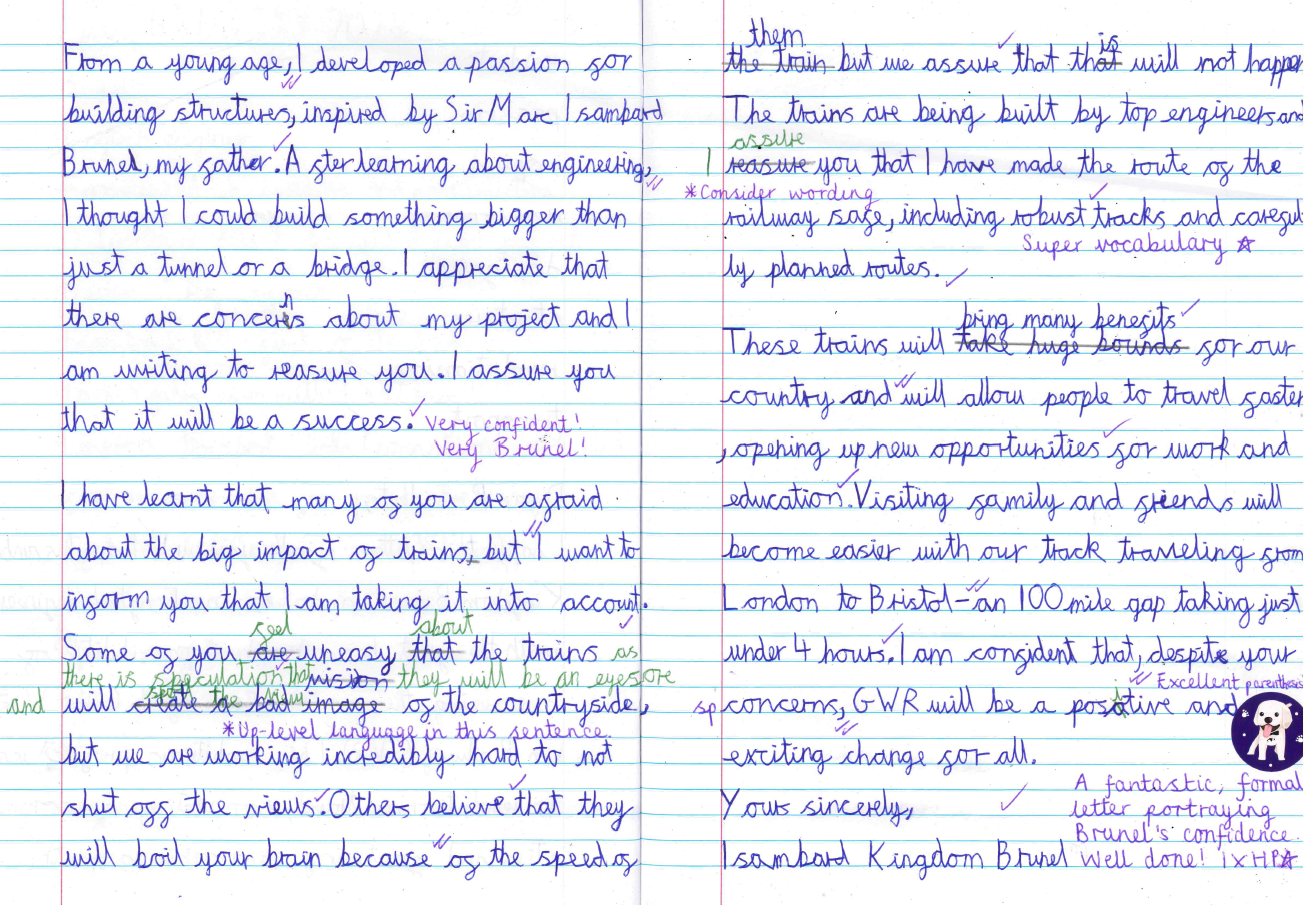 From a young age, I developed a passion for
building structures, inspired by Sir Marc Isambard
Brunel, my father. After learning about engineering,
I thought I could build something bigger than
just a tunnel or a bridge. I appreciate that
n
there are concers about my project and I
am writing to reasure you. I assure you
that it will be a success. Very confident!
Very Brunel!
I have learnt that many of you are afraid
about the big impact of trains, but I want to
inform you that I am taking it into account.
feel about
Some of you are uneasy that the trains as
there is speculation that vision they will be an eyesore
and will create a bad image of the countryside,
*Up-level language in this sentence.
but we are working incredibly hard to not
shut off the views. Others believe that they
will boil your brain because of the speed of
them
is
the train but we assure that that will not happen
The trains are being built by top engineers and
assure
I reasure you that I have made the route of the
*Consider wording
railway safe, including robust tracks and careful
Super vocabulary
ly planned routes.
bring many benefits
These trains will take huge bounds for our
country and will allow people to travel faster
, opening up new opportunities for work and
education. Visiting family and friends will
become easier with our track traveling from
London to Bristol - an 100 mile gap taking just
under 4 hours. I am confident that, despite your
Excellent parenthesis
sp concerns, GWR will be a positive and
exciting change for all.
Yours sincerely,
Isambard Kingdom Brunel
A fantastic, formal
letter portraying
Brunel's confidence.
Well done! 1xHP